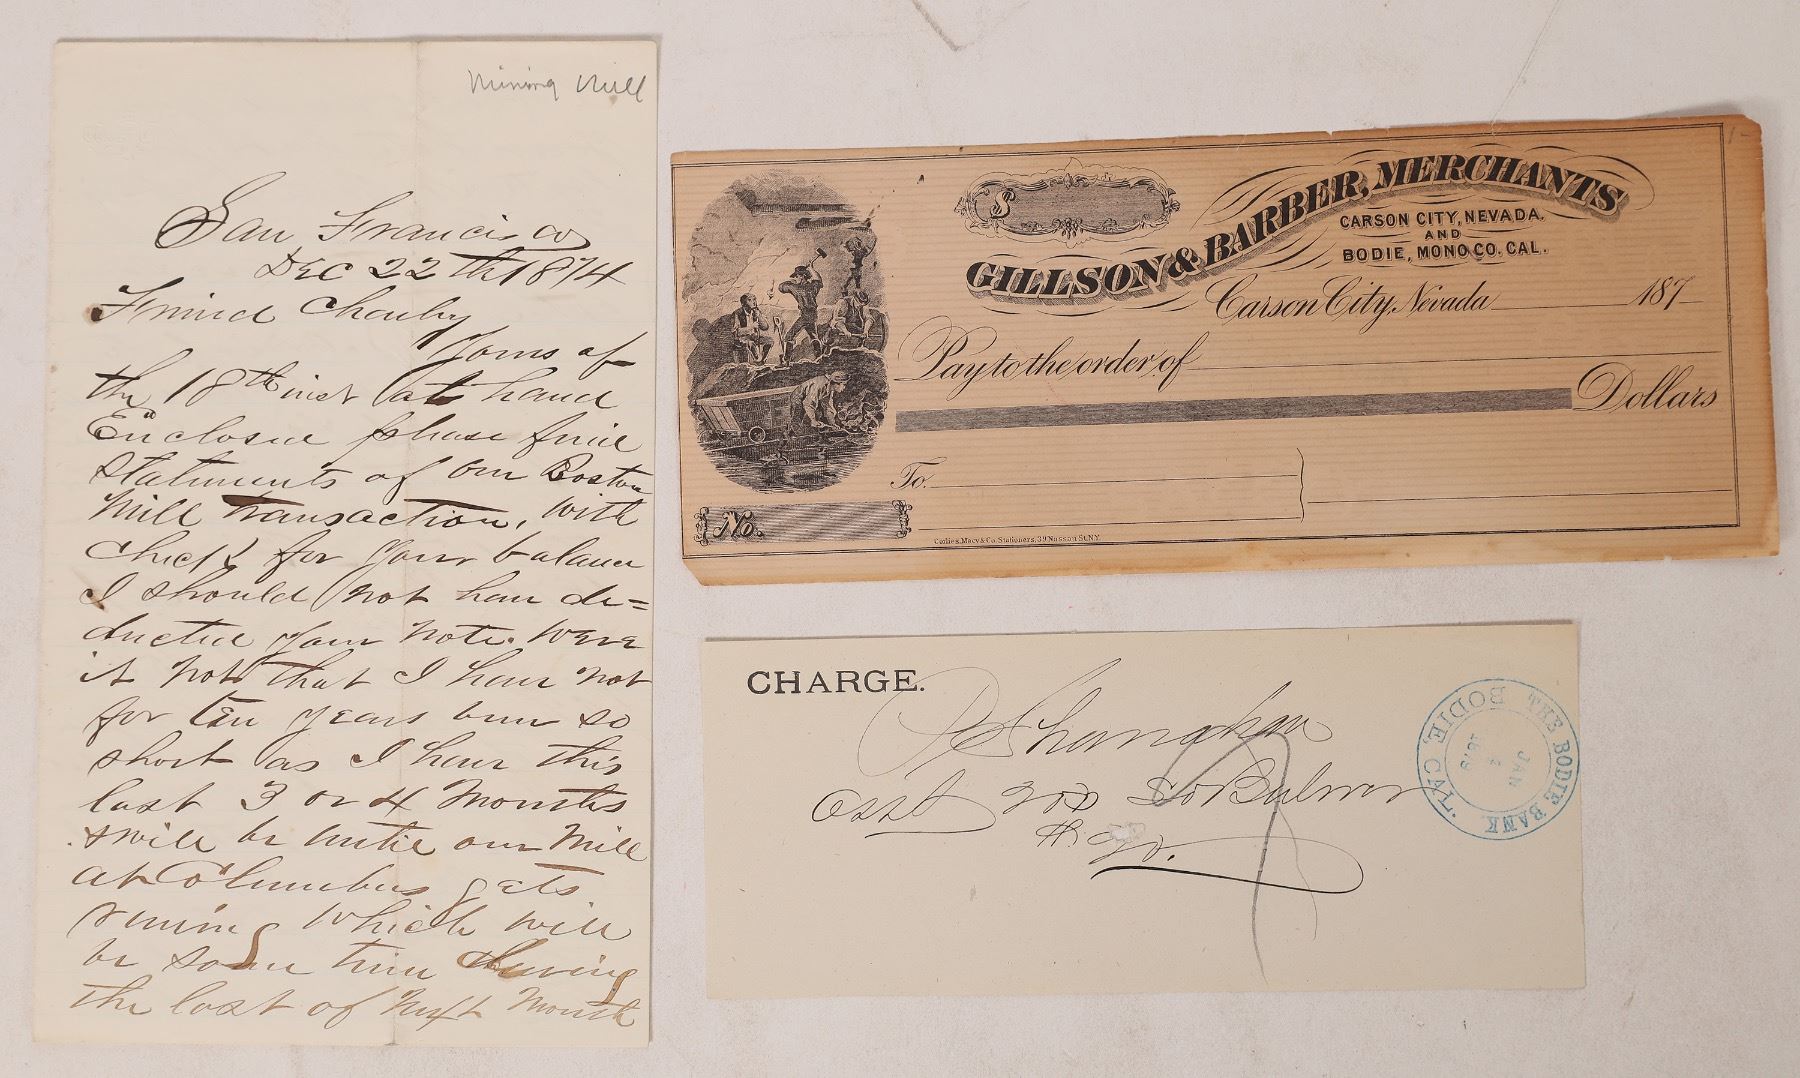 Mining Mill
San Francisco
Dec 22th 1874
Friend Charley
Yours of
the 18th inst at hand
Enclosed please find
statements of our Boston
Mill transaction, with
check for your balance
I should not have de=
ducted your note. Were
it not that I have not
for ten years been so
short as I have this
last 3 or 4 Months
& will be untill our Mill
at Columbus gets
runing which will
be some time during
the last of next Month
$
GILLSON & BARBER, MERCHANTS
CARSON CITY, NEVADA,
AND
BODIE, MONO CO. CAL.
Carson City, Nevada 187
Pay to the order of
Dollars
To.
No.
Corlies, Macy & Co. Stationers, 39 Nassau St. N.Y.
CHARGE.
Bulwer
THE BODIE BANK.
JAN
2
1879
BODIE, CAL.